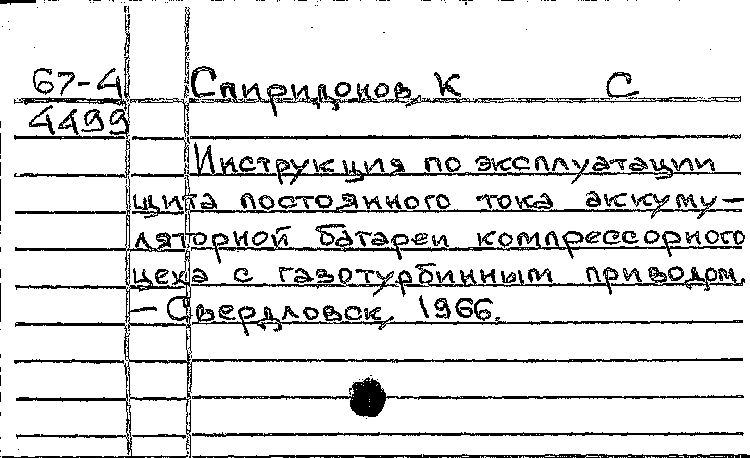 67-4 Спиридонов, К С
4499
Инструкция по эксплуатации
щита постоянного тока аккуму-
ляторной батареи компрессорного
цеха с газотурбинным приводом.
- Свердловск, 1966.